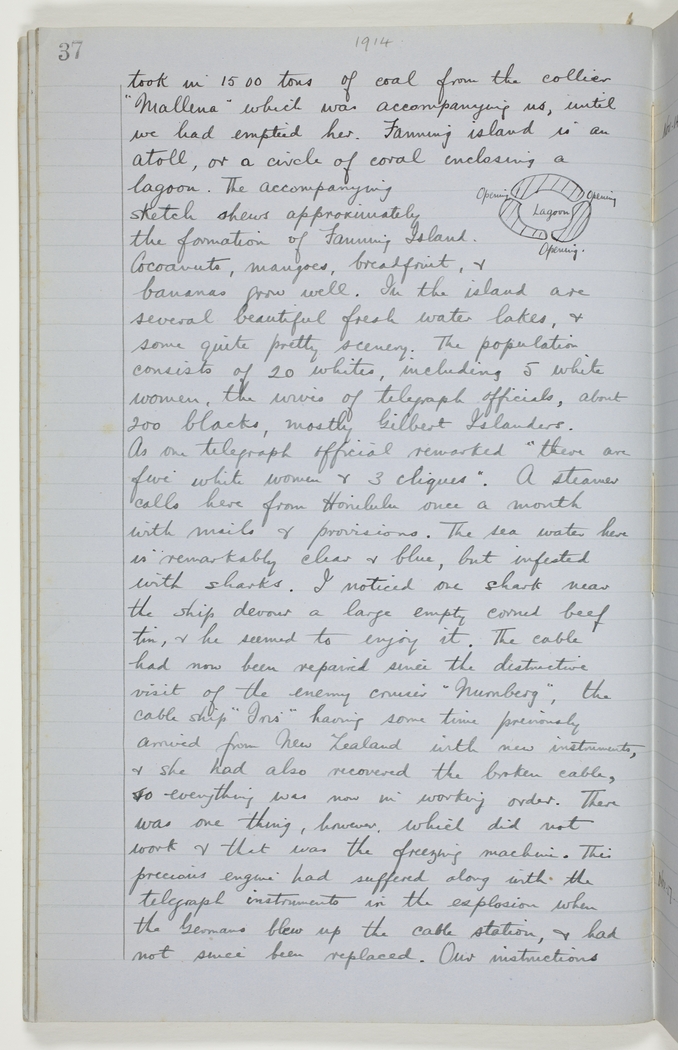 37
1914
took in 1500 tons of coal from the collier
"Mallena" which was accompanying us, until
we had emptied her. Fanning island is an
atoll, or a circle of coral enclosing a
lagoon. The accompanying
sketch shews approximately
the formation of Fanning Island.
Opening
Opening
Lagoon
Opening.
Cocoanuts, mangoes, breadfruit, &
bananas grow well. In the island are
several beautiful fresh water lakes, &
some quite pretty scenery. The population
consists of 20 whites, including 5 white
women, the wives of telegraph officials, about
200 blacks, mostly Gilbert Islanders.
As one telegraph official remarked "there are
five white women & 3 cliques". A steamer
calls here from Honilulu once a month
with mails & provisions. The sea water here
is remarkably clear & blue, but infested
with sharks. I noticed one shark near
the ship devour a large empty corned beef
tin, & he seemed to enjoy it. The cable
had now been repaired since the distructive
visit of the enemy cruiser "Nurnberg", the
cable ship "Iris" having some time previously
arrived from New Zealand with new instruments,
& she had also recovered the broken cable,
so everything was now in working order. There
was one thing, however, which did not
work & that was the freezing machine. This
precious engine had suffered along with the
telegraph instruments in the explosion when
the Germans blew up the cable station, & had
not since been replaced. Our instructions